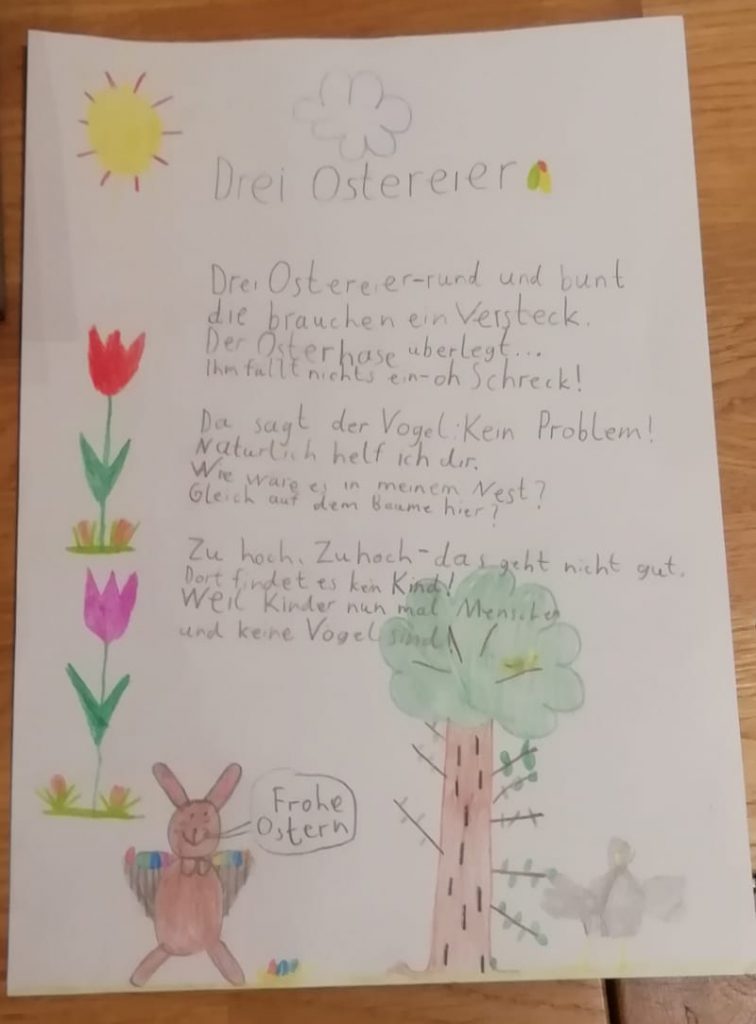 Drei Ostereier
Drei Ostereier-rund und bunt
die brauchen ein Versteck.
Der Osterhase uberlegt...
Ihm fallt nichts ein-oh Schreck!
Da sagt der Vogel: Kein Problem!
Naturlich helf ich dir.
Wie ware es in meinem Nest?
Gleich auf dem Baume hier?
Zu hoch, Zu hoch - das geht nicht gut.
Dort findet es kein Kind!
Weil Kinder nun mal Menschen
und keine Vogel sind!
Frohe
Ostern